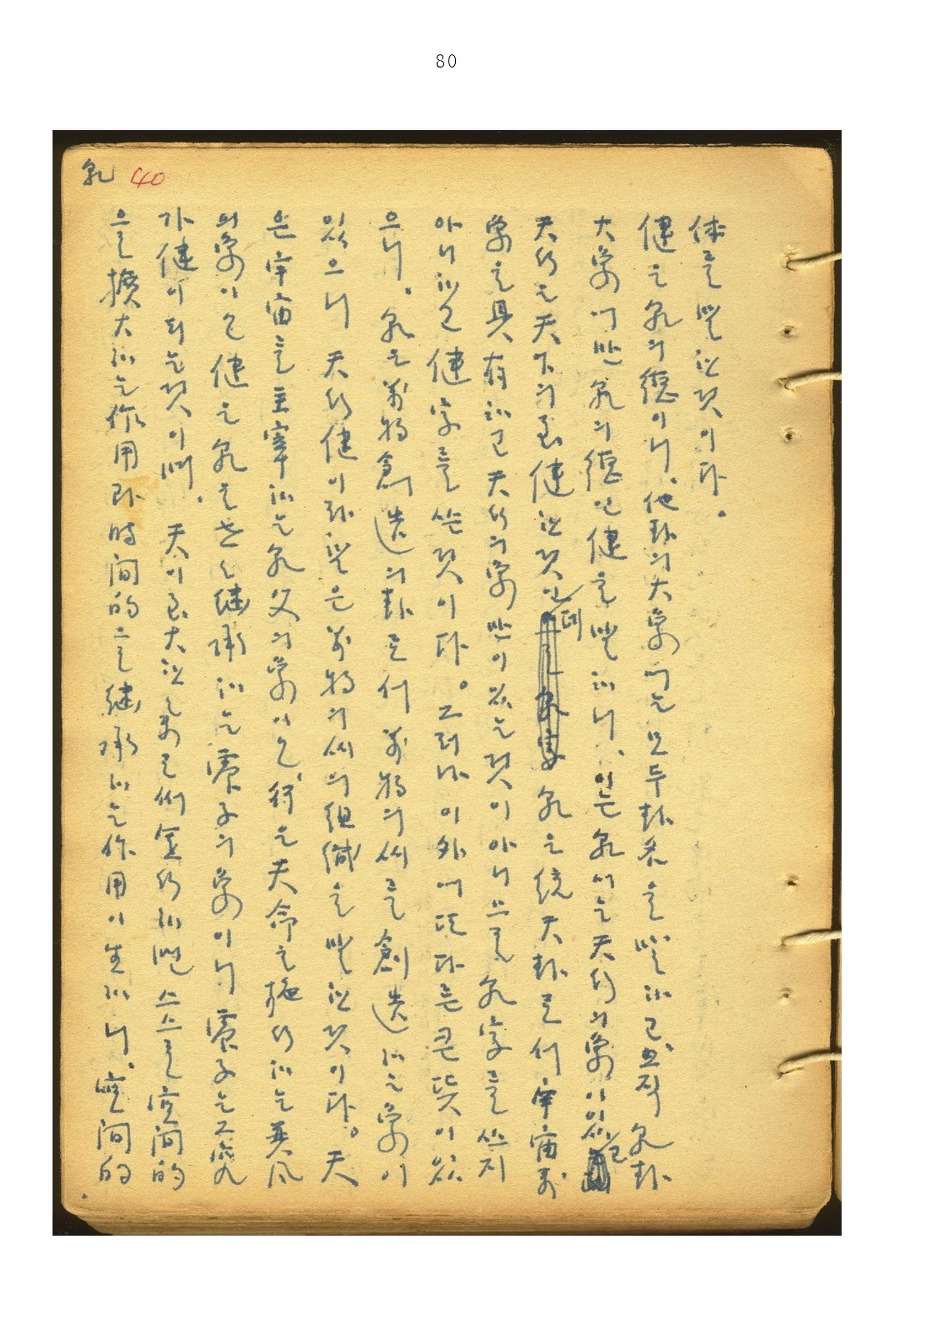 80
乾 40
体를 말한것이다.
健은 乾의 德이니, 他卦의 大象에는 모두 卦名을 말하고 오직 乾卦
大象에만 乾의 德인 健을 말하니, 이는 乾에는 天行의 象이 있고
天行은 天下의 至健한것인데 乾은 統天卦로서 宇宙萬
象을 具有하고 天行의 象만이 있는것이 아니므로 乾字를 쓰지
아니하고 健字를 쓴것이다. 그러나 이外에 또다른 큰 뜻이 있
으니, 乾은 萬物創造의 卦로서 萬物의 씨를 創造하는 象이
있으니 天行健이라 함은 萬物의 씨의 組織을 말한것이다. 天
은 宇宙를 主宰하는 乾父의 象이오, 行은 天命을 施行하는 巽風
의 象이오 健은 乾을 繼承하는 震子의 象이니 震子는 그
가 健이 되는것이며, 天이 至大한 象으로서 運行하면 스스로 空間的
을 擴大하는 作用 即 時間的을 繼承하는 作用이 生하니, 空間的